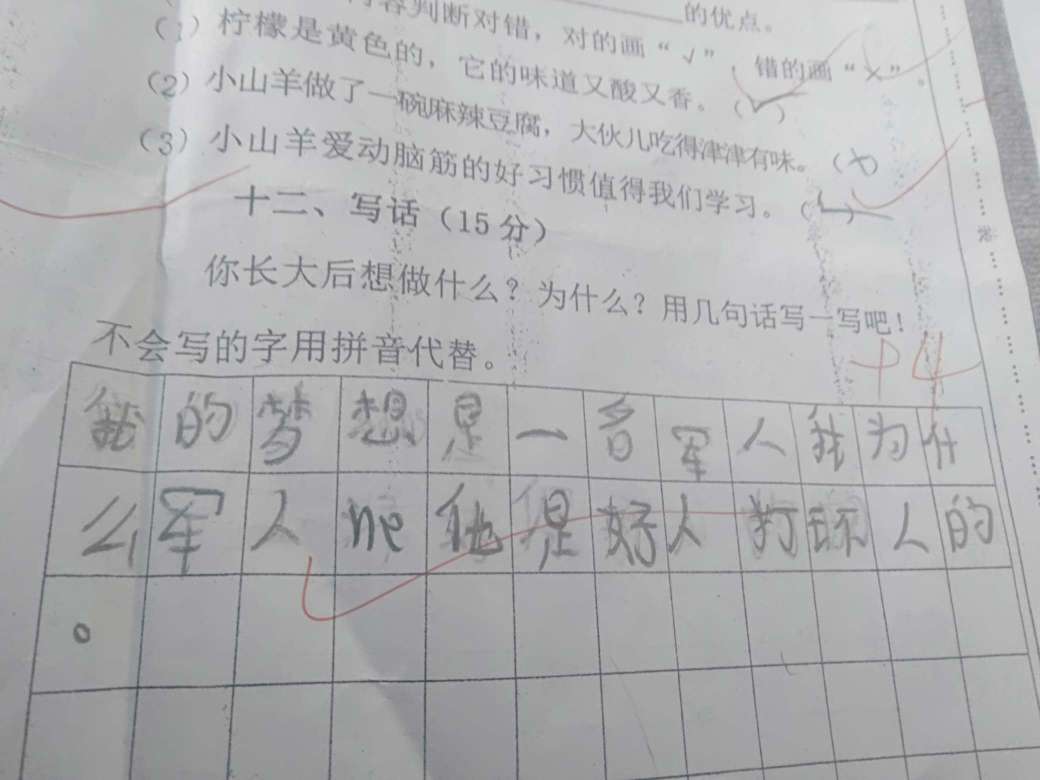 容判断对错，对的画“√”，错的画“×”。
的优点。
（1）柠檬是黄色的，它的味道又酸又香。（√）
（2）小山羊做了一碗麻辣豆腐，大伙儿吃得津津有味。（×）
（3）小山羊爱动脑筋的好习惯值得我们学习。（√）
十二、写话（15分）
你长大后想做什么？为什么？用几句话写一写吧！
不会写的字用拼音代替。
+4
我的梦想是一名军人我为什
么军人ne他是好人打坏人的
。